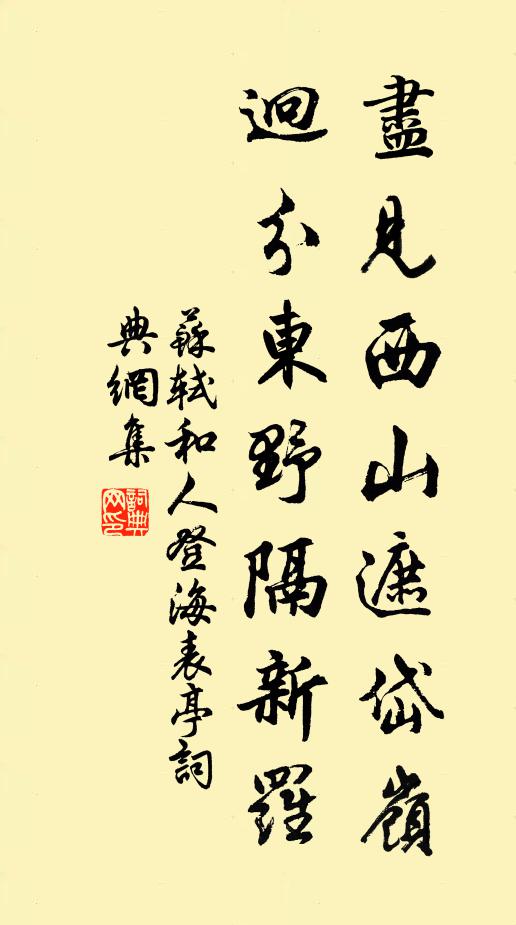 盡見西山遮岱嶺
迥分東野隔新羅
蘇軾和人登海表亭詞
典網集
詞典
网印